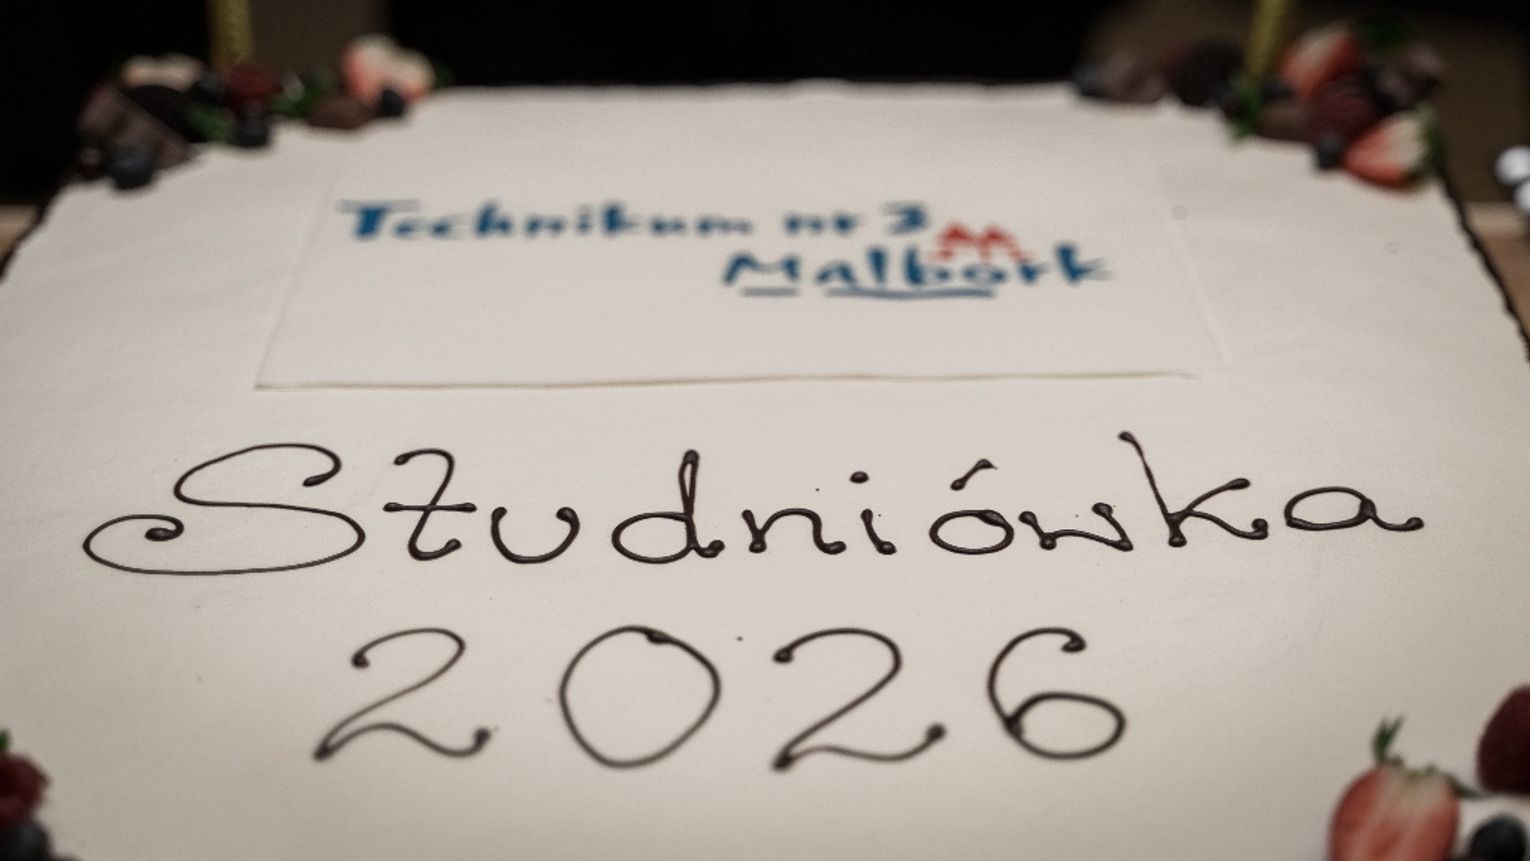 Technikum nr 3
Malbork
Studniówka
2026